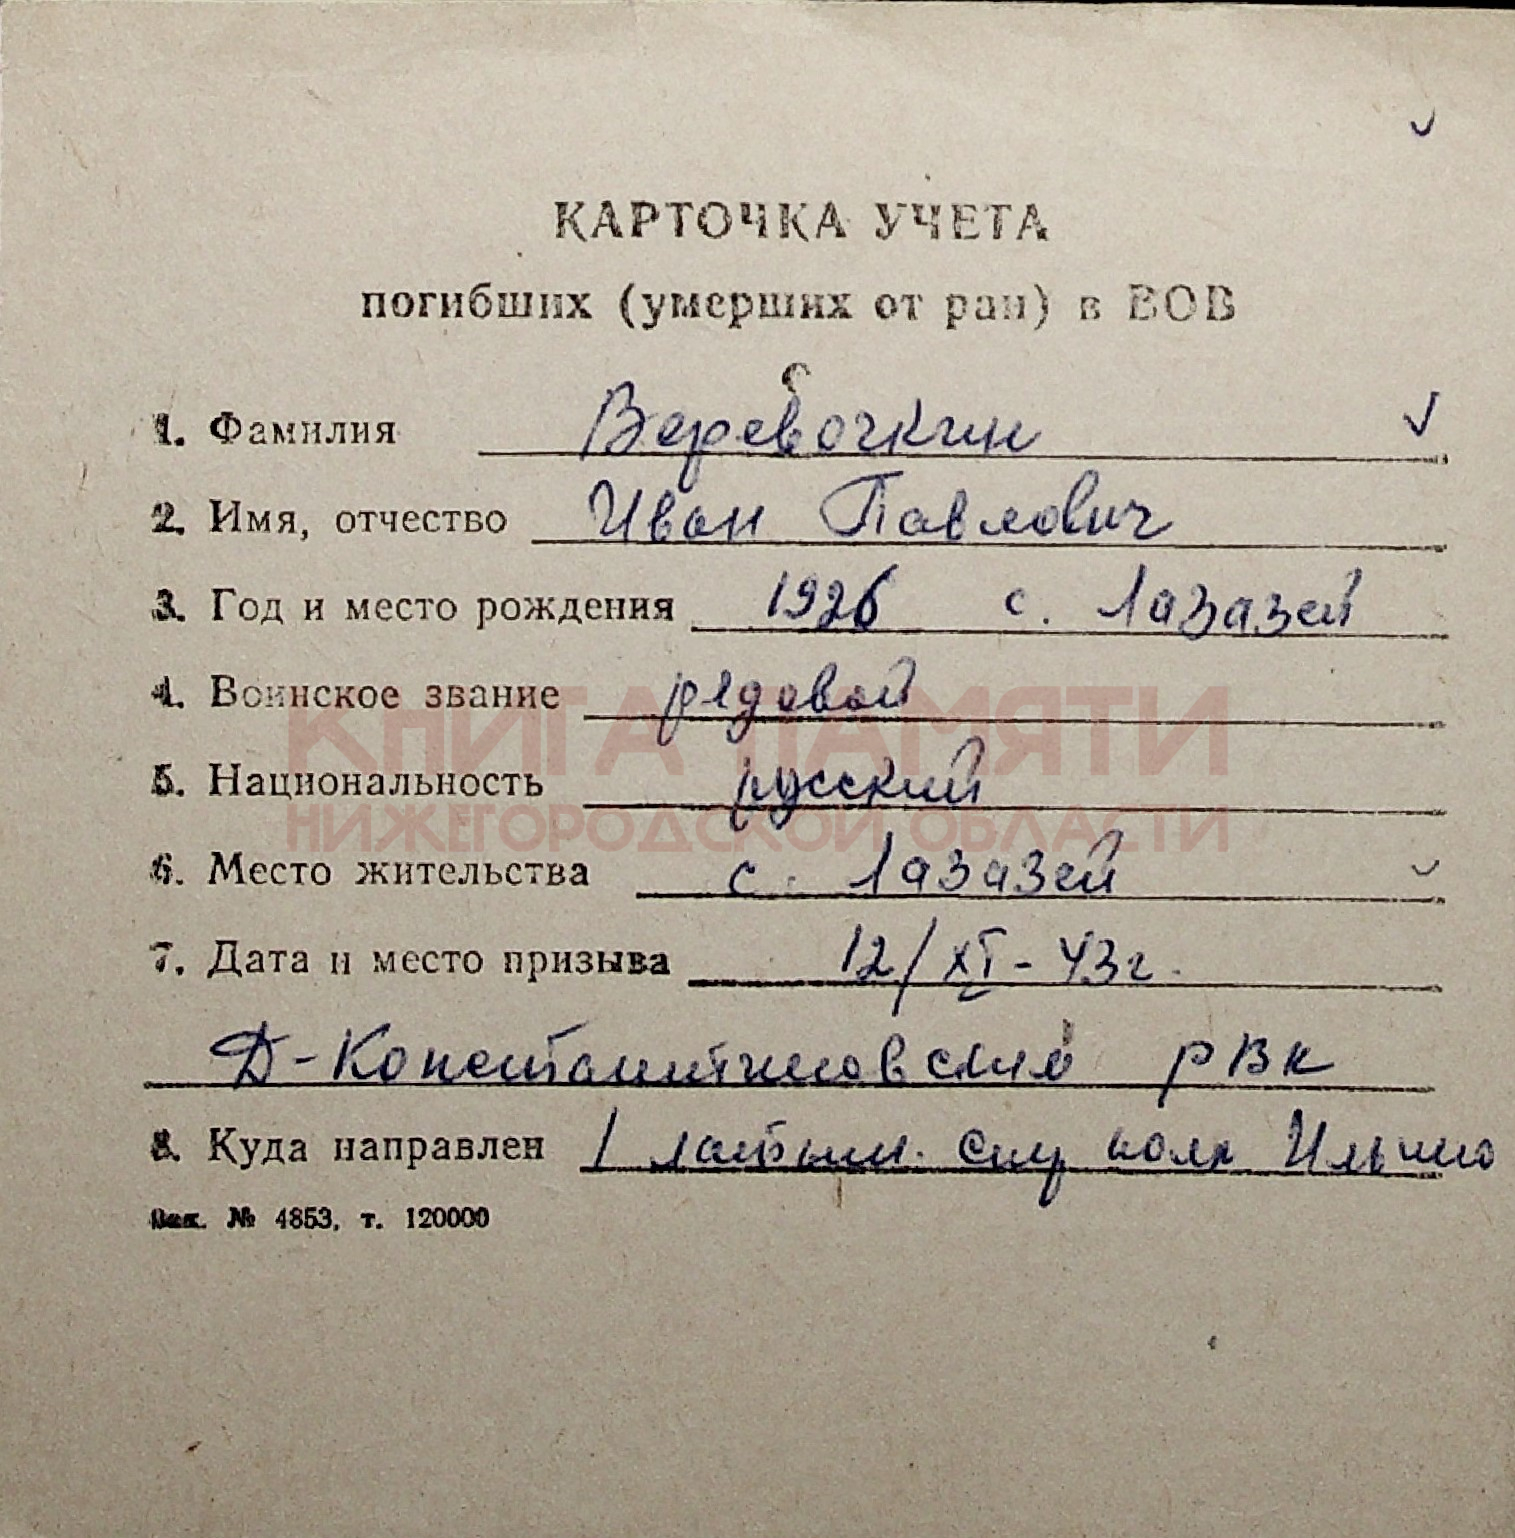 КАРТОЧКА УЧЕТА
погибших (умерших от ран) в ВОВ
1. Фамилия Веревочкин
2. Имя, отчество Иван Павлович
3. Год и место рождения 1926 с. Лазазей
4. Воинское звание рядовой
КНИГА ПАМЯТИ
5. Национальность русский
НИЖЕГОРОДСКОЙ ОБЛАСТИ
6. Место жительства с. Лазазей
7. Дата и место призыва 12/XI-43г.
Д-Константиновский РВК
8. Куда направлен 1 латыш. полк Ильино
Зак. № 4853, т. 120000